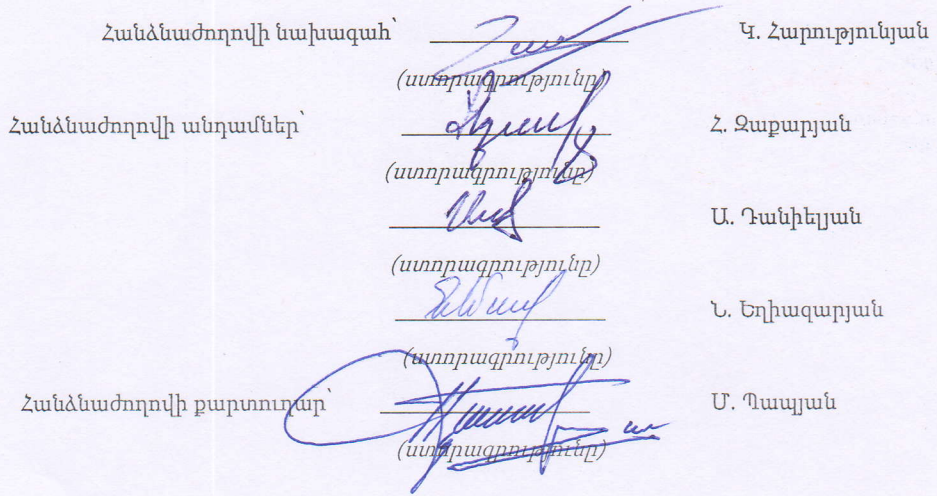 Հանձնաժողովի նախագահ՝ Կ. Հարությունյան
(ստորագրությունը)
Հանձնաժողովի անդամներ՝ Հ. Զաքարյան
(ստորագրությունը)
Ա. Դանիելյան
(ստորագրությունը)
Ն. Եղիազարյան
(ստորագրությունը)
Հանձնաժողովի քարտուղար՝ Մ. Պապյան
(ստորագրությունը)